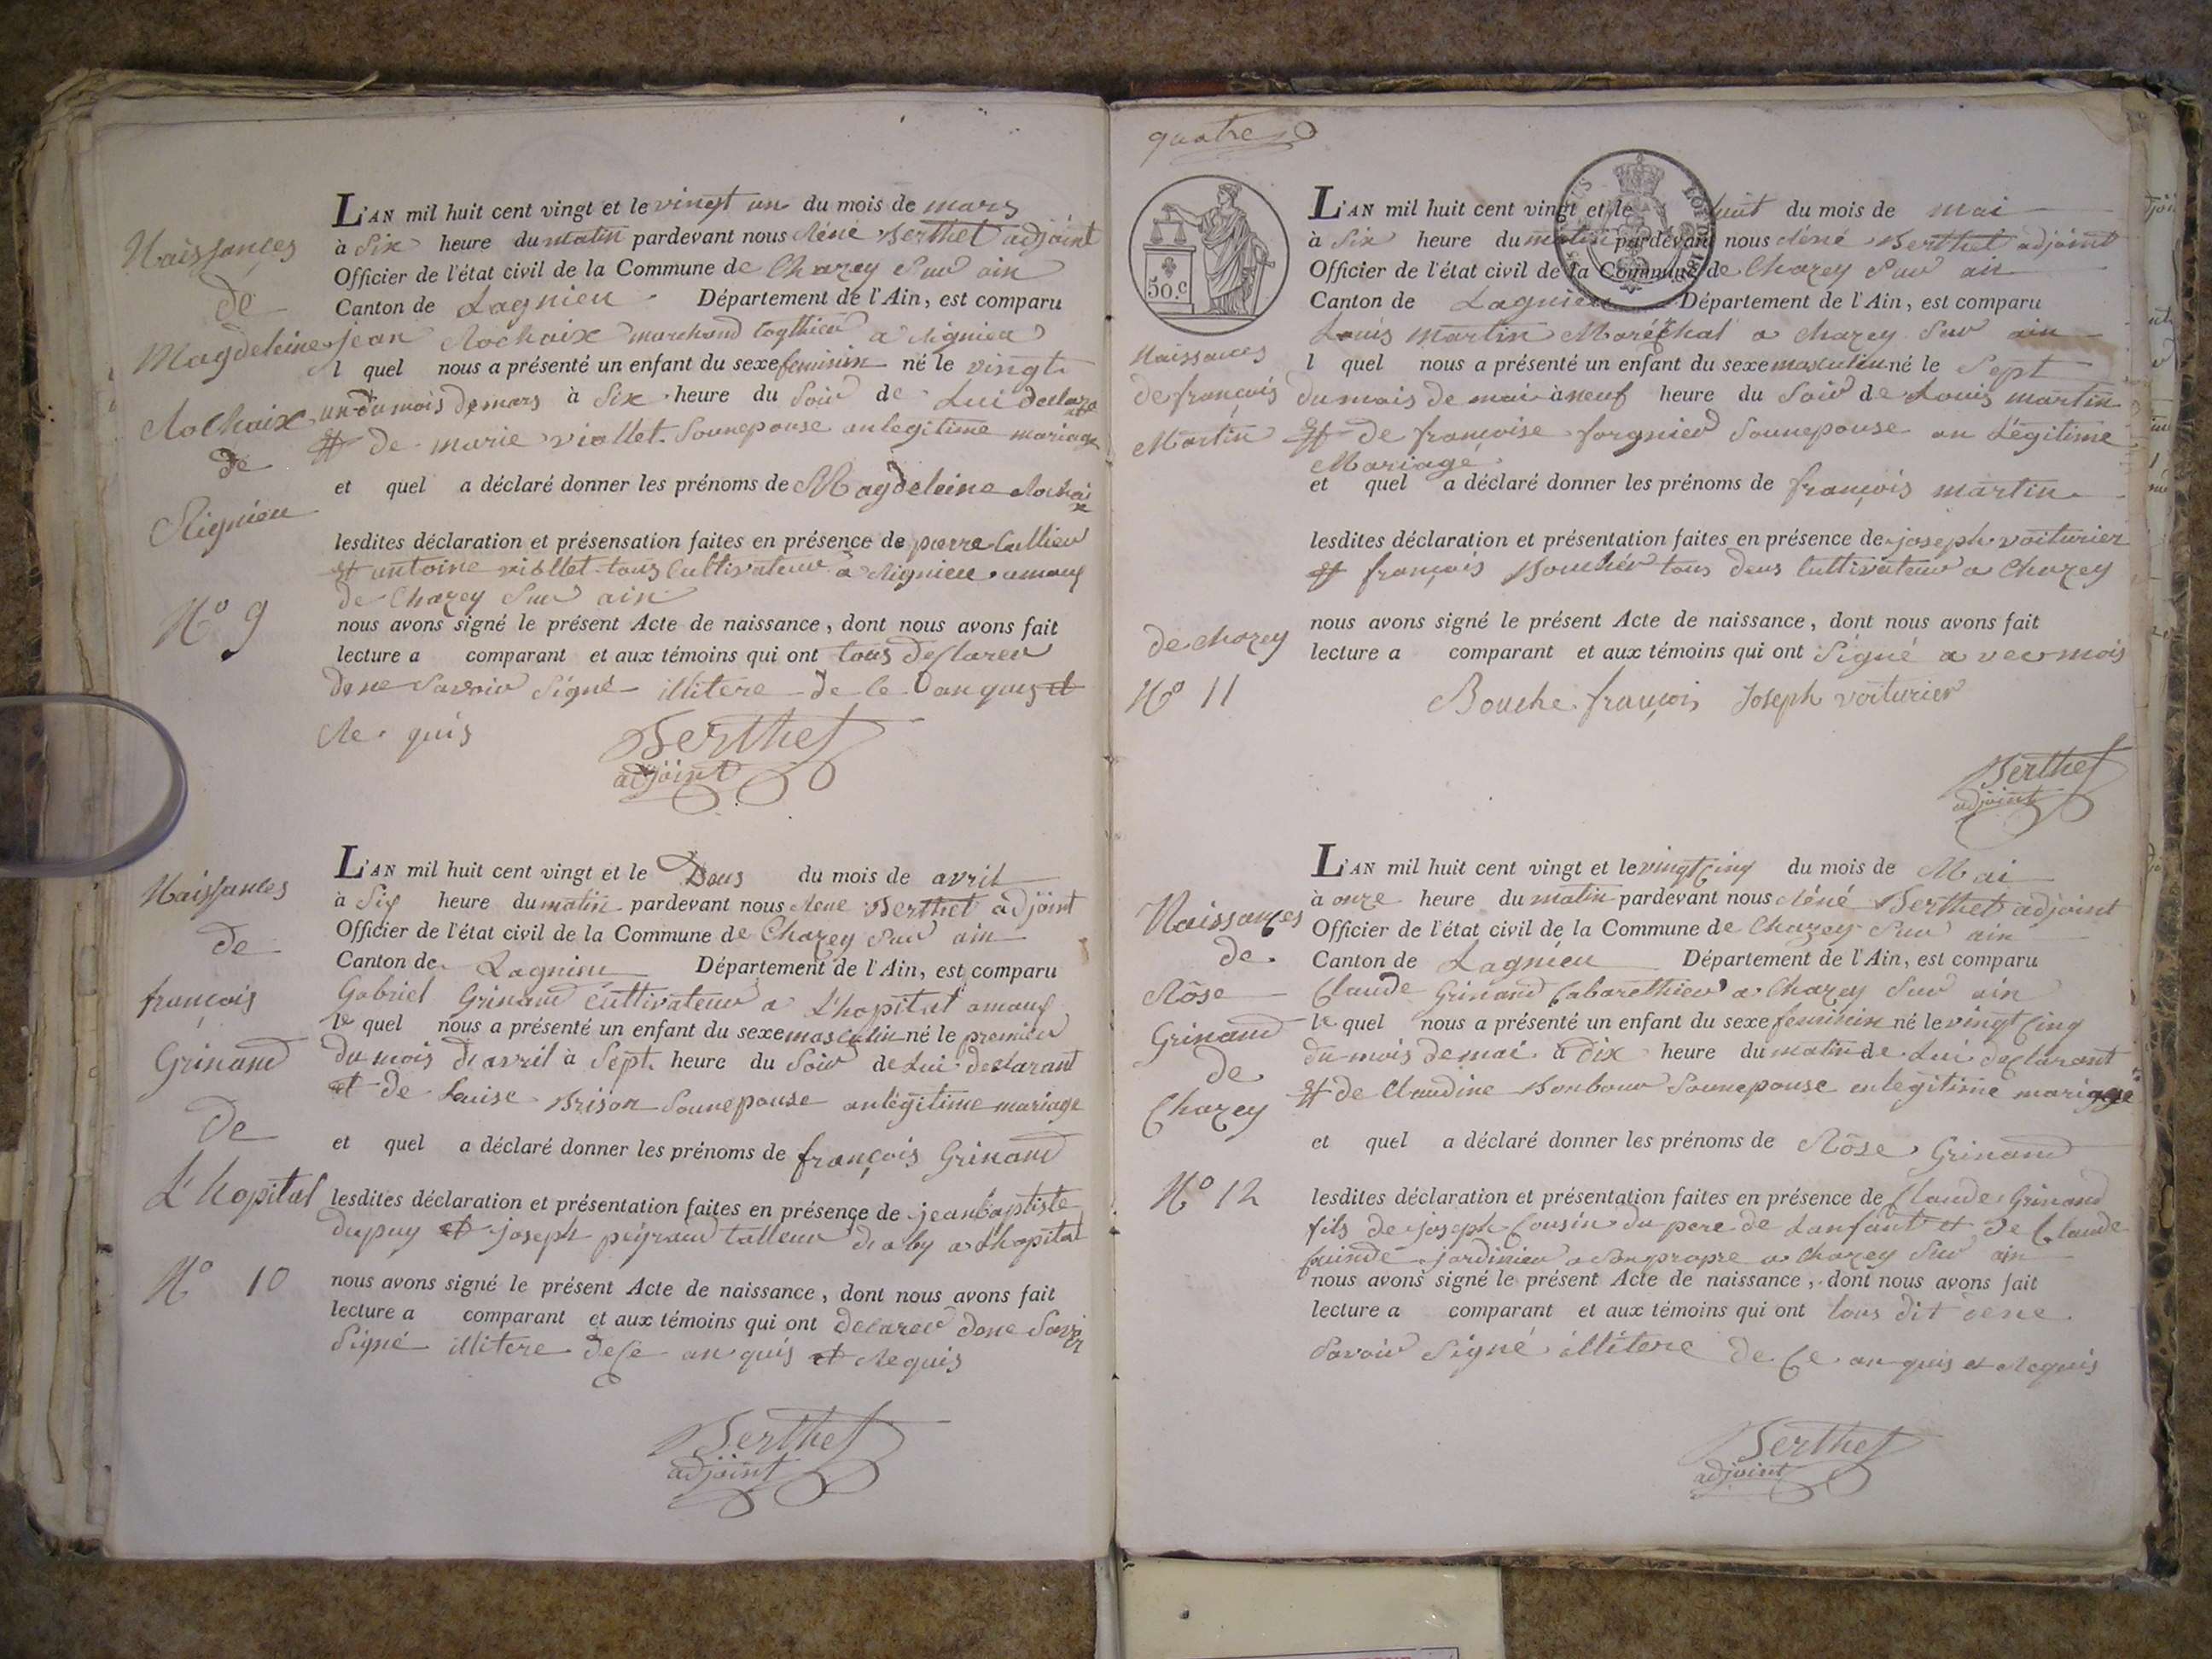 Naissances
de
Magdeleine
Rochaix
de
Rignieu
N° 9
L'AN mil huit cent vingt et le vingt un du mois de mars
à Six heure du matin pardevant nous Réné Berthet adjoint
Officier de l'état civil de la Commune de Chazey Sur ain
Canton de Lagnieu Département de l'Ain, est comparu
jean Rochaix marchand a Rignieu
l quel nous a présenté un enfant du sexe feminin né le vingt
un du mois de mars à Six heure du Soir de Lui declara
et de marie viollet Sounepouse an legitime mariage
et quel a déclaré donner les prénoms de Magdeleine Rochaix
lesdites déclaration et présensation faites en présence de pierre Cullier
et antoine viollet tous Cultivateur a Rignieu amauf
de Chazey Sur ain
nous avons signé le présent Acte de naissance, dont nous avons fait
lecture a comparant et aux témoins qui ont tous declarer
de ne Savoir Signé illitere de Ce anquis et
Re quis
Berthet
adjoint
Naissances
de
françois
Grinand
de
L'hopital
N° 10
L'AN mil huit cent vingt et le Deus du mois de avril
à Six heure du matin pardevant nous Réné Berthet adjoint
Officier de l'état civil de la Commune de Chazey Sur ain
Canton de Lagnieu Département de l'Ain, est comparu
Gabriel Grinand Cultivateur a L'hopital amauf
le quel nous a présenté un enfant du sexe masculin né le premier
du mois d'avril à Sept heure du Soir de Lui declarant
et de Louise Brison Sounepouse anlégitime mariage
et quel a déclaré donner les prénoms de françois Grinand
lesdites déclaration et présentation faites en présence de jean baptiste
dupuy et joseph peyraud talleur d'aby a Lhopital
nous avons signé le présent Acte de naissance, dont nous avons fait
lecture a comparant et aux témoins qui ont declarer dene Savoir
Signé illitere de Ce an quis et Requis
Berthet
adjoint
quatre
50.c
Naissances
de françois
Martin
de chazey
N° 11
L'AN mil huit cent vingt et le huit du mois de mai
à Six heure du matin pardevant nous Réné Berthet adjoint
Officier de l'état civil de la Commune de Chazey Sur ain
Canton de Lagnieu Département de l'Ain, est comparu
Louis Martin Maréchal a chazey Sur ain
l quel nous a présenté un enfant du sexe masculin né le Sept
du mois de mai à neuf heure du Soir de Louis martin
et de françoise forgnier Sounepouse an Légitime
Mariage
et quel a déclaré donner les prénoms de françois martin
lesdites déclaration et présentation faites en présence de joseph voiturier
et françois Bouchér tous deus Cultivateur a Chazey
nous avons signé le présent Acte de naissance, dont nous avons fait
lecture a comparant et aux témoins qui ont Signé a vec mois
Bouche françois Joseph voiturier
Berthet
adjoint
Naissances
de
Rôse
Grinand
de
Chazey
N° 12
L'AN mil huit cent vingt et le vingt Cinq du mois de Mai
à onze heure du matin pardevant nous Réné Berthet adjoint
Officier de l'état civil de la Commune de Chazey Sur ain
Canton de Lagnieu Département de l'Ain, est comparu
Claude Grinand Cabarethier a Chazey Sur ain
le quel nous a présenté un enfant du sexe feminin né le vingt Cinq
du mois de mai à Dix heure du matin de Lui declarant
et de Claudine Bonbour Sounepouse en legitime mariage
et quel a déclaré donner les prénoms de Rôse Grinand
lesdites déclaration et présentation faites en présence de Claude Grinand
fils de joseph Cousin du pere de Lanfant et de Claude
jardinier a Son propre a Chazey Sur ain
nous avons signé le présent Acte de naissance, dont nous avons fait
lecture a comparant et aux témoins qui ont tous dit dene
Savoir Signé illitere de Ce an quis et Requis
Berthet
adjoint